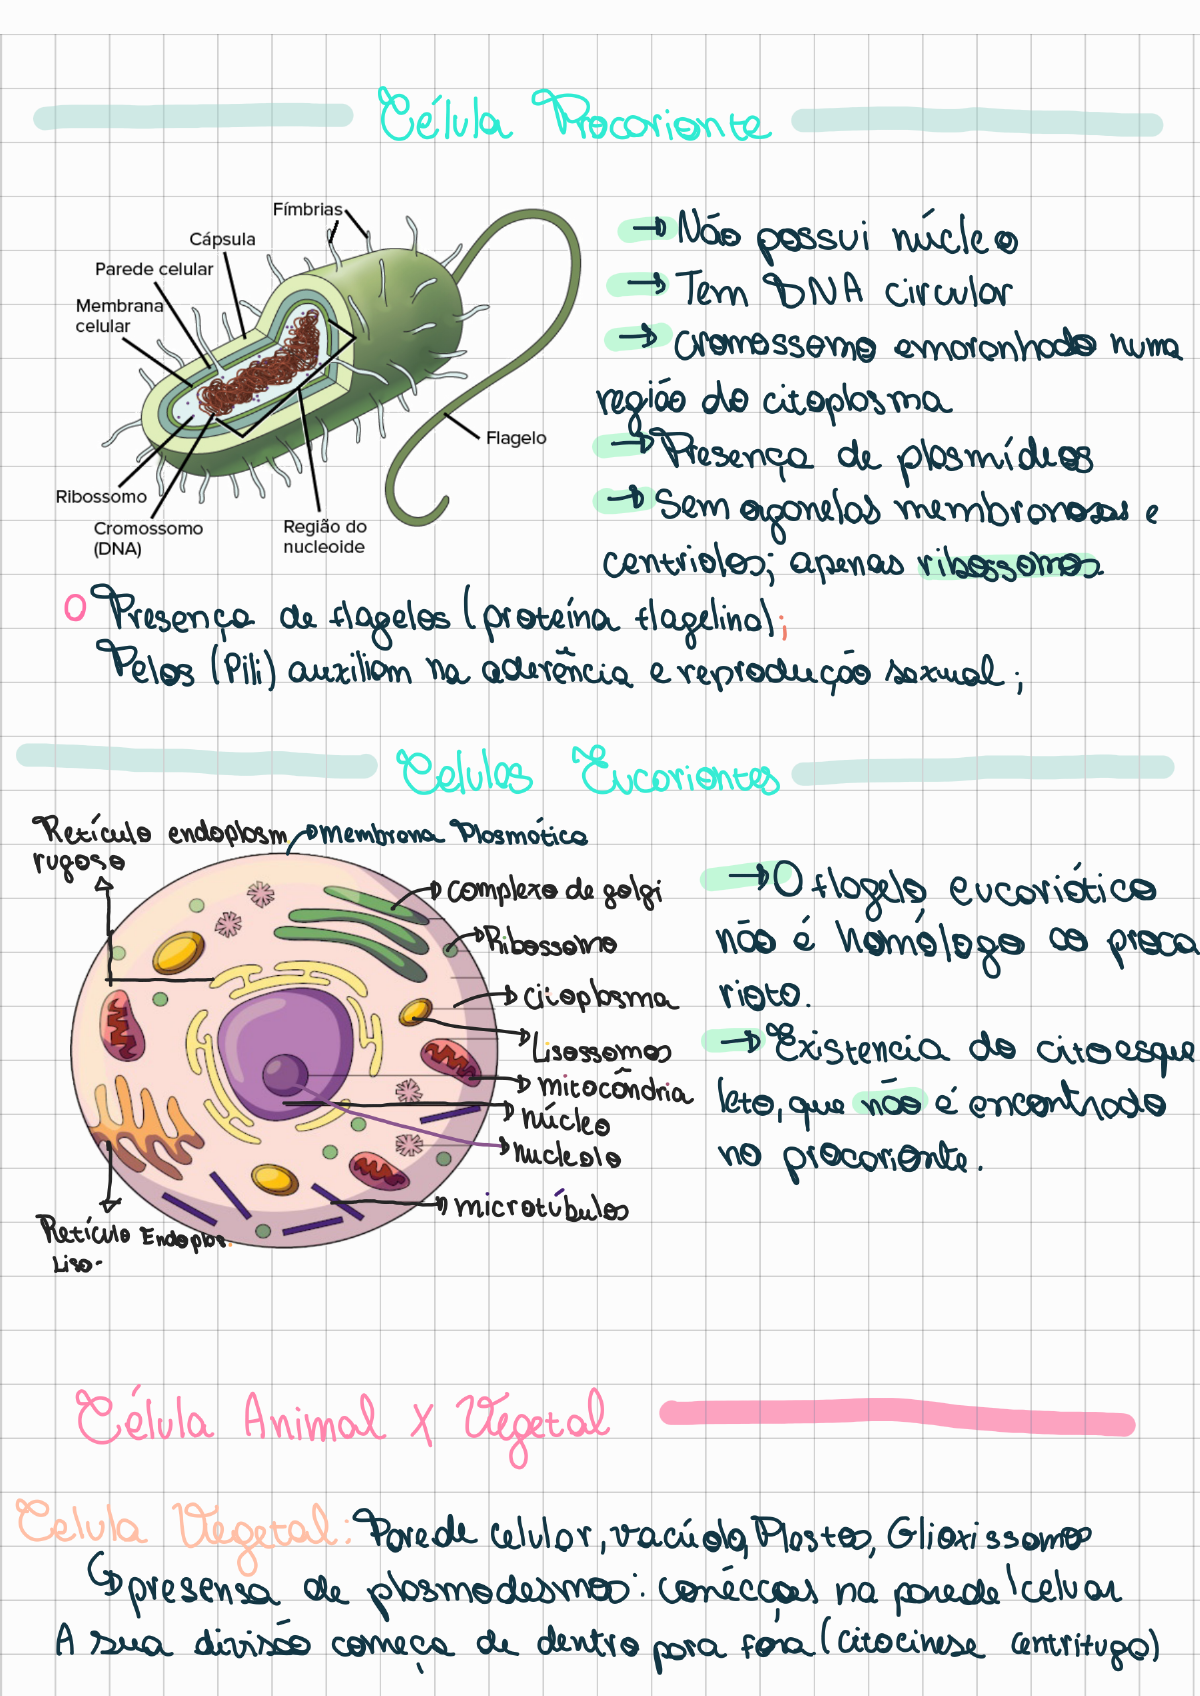 Célula Procarionte
Fímbrias
Cápsula
Parede celular
Membrana
celular
Ribossomo
Cromossomo
(DNA)
Região do
nucleoide
Flagelo
→ Não possui núcleo
→ Tem DNA circular
→ cromossomo emaranhado numa
região do citoplasma
→ Presença de plasmídeos
→ Sem oganelas membranosas e
centriolos; apenas ribossomos
O Presença de flagelos (proteína flagelina);
Pelos (Pili) auxiliam na aderência e reprodução sexual;
Celulas Eucariontes
Retículo endoplasm.
rugoso
Membrana Plasmática
complexo de golgi
Ribossomo
citoplasma
Lisossomos
mitocôndria
núcleo
nucleolo
microtúbulos
Retículo Endoplas.
Liso.
→ O flagelo eucariótico
não é homólogo ao proca
rioto.
→ Existencia do citoesque
leto, que não é encontrado
no procarionte.
Célula Animal X Vegetal
Celula Vegetal: Parede celular, vacúolo, Plastos, Glioxissomos
↳ presensa de plasmodesmos: conécçoes na parede celuar
A sua divisão começa de dentro para fora (citocinese centrifuga)